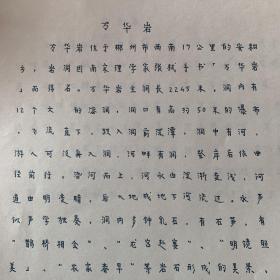 万华岩
万华岩位于郴州市西南17公里的安和
乡,岩洞因南宋理学家张栻手书"万华岩
"而得名。万华岩主洞长2245米,洞内有
12个大的溶洞,洞口有高约50米的瀑布
,飞流直下,跌入洞前深潭,洞中有河,
游人可泛舟入洞,河畔有洞,登岸后依曲
径前行。沿河而上,河水由深渐变浅,河
道由明变暗,后入地成地下河流过。水声
似声学独奏,洞内多钟乳石,有石笋,有
"鹊桥相会"、"龙宫赴宴"、"明镜照
美"、"农家春早"等岩石形成的美景。